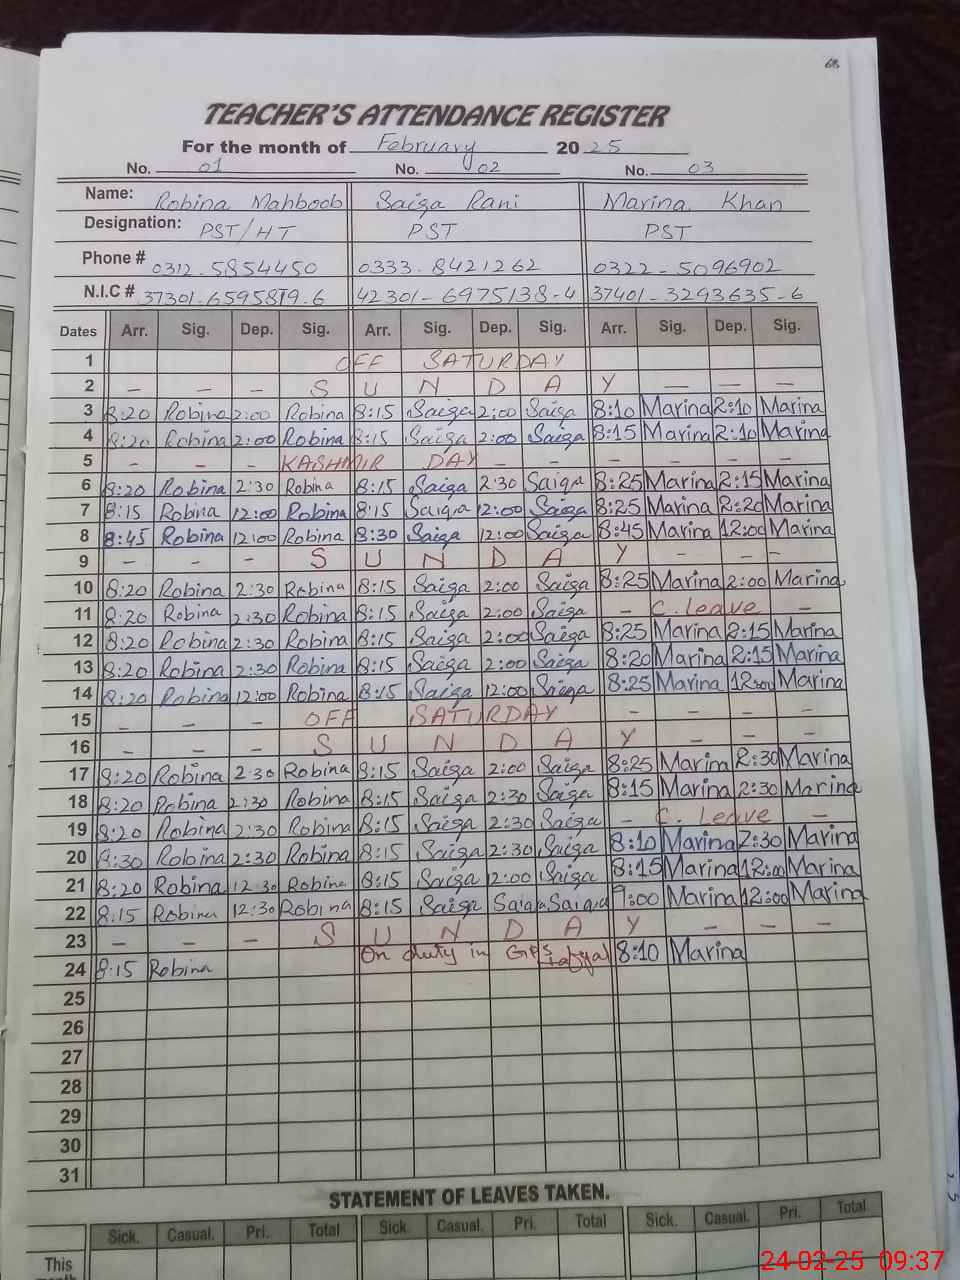 68
TEACHER'S ATTENDANCE REGISTER
For the month of February 2025
No. 01 No. 02 No. 03
Name: Robina Mahboob Saiqa Rani Marina Khan
Designation: PST/HT PST PST
Phone # 0312-5854450 0333-8421262 0322-5096902
N.I.C # 37301-6595819-6 42301-6975138-4 37401-3293635-6
Dates Arr. Sig. Dep. Sig. Arr. Sig. Dep. Sig. Arr. Sig. Dep. Sig.
1 OFF SATURDAY
2 - - - S U N D A Y - - -
3 8:20 Robina 2:00 Robina 8:15 Saiqa 2:00 Saiqa 8:10 Marina 2:10 Marina
4 8:20 Robina 2:00 Robina 8:15 Saiqa 2:00 Saiqa 8:15 Marina 2:10 Marina
5 - - - KASHMIR DAY - - - - - -
6 8:20 Robina 2:30 Robina 8:15 Saiqa 2:30 Saiqa 8:25 Marina 2:15 Marina
7 8:15 Robina 12:00 Robina 8:15 Saiqa 12:00 Saiqa 8:25 Marina 2:20 Marina
8 8:45 Robina 12:00 Robina 8:30 Saiqa 12:00 Saiqa 8:45 Marina 12:00 Marina
9 - - - S U N D A Y - - -
10 8:20 Robina 2:30 Robina 8:15 Saiqa 2:00 Saiqa 8:25 Marina 2:00 Marina
11 8:20 Robina 2:30 Robina 8:15 Saiqa 2:00 Saiqa - C. leave -
12 8:20 Robina 2:30 Robina 8:15 Saiqa 2:00 Saiqa 8:25 Marina 2:15 Marina
13 8:20 Robina 2:30 Robina 8:15 Saiqa 2:00 Saiqa 8:20 Marina 2:15 Marina
14 8:20 Robina 12:00 Robina 8:15 Saiqa 12:00 Saiqa 8:25 Marina 12:00 Marina
15 - - - OFF SATURDAY - - - -
16 - - - S U N D A Y - - -
17 8:20 Robina 2:30 Robina 8:15 Saiqa 2:00 Saiqa 8:25 Marina 2:30 Marina
18 8:20 Robina 2:30 Robina 8:15 Saiqa 2:30 Saiqa 8:15 Marina 2:30 Marina
19 8:20 Robina 2:30 Robina 8:15 Saiqa 2:30 Saiqa - C. Leave -
20 8:30 Robina 2:30 Robina 8:15 Saiqa 2:30 Saiqa 8:10 Marina 2:30 Marina
21 8:20 Robina 12:30 Robina 8:15 Saiqa 12:00 Saiqa 8:15 Marina 12:00 Marina
22 8:15 Robina 12:30 Robina 8:15 Saiqa Saiqa Saiqa 9:00 Marina 12:00 Marina
23 - - - S U N D A Y - - -
24 8:15 Robina On duty in GPS 8:10 Marina
25
26
27
28
29
30
31
STATEMENT OF LEAVES TAKEN.
Sick. Casual. Pri. Total Sick. Casual. Pri. Total Sick. Casual. Pri. Total
This
month
24-02-25 09:37